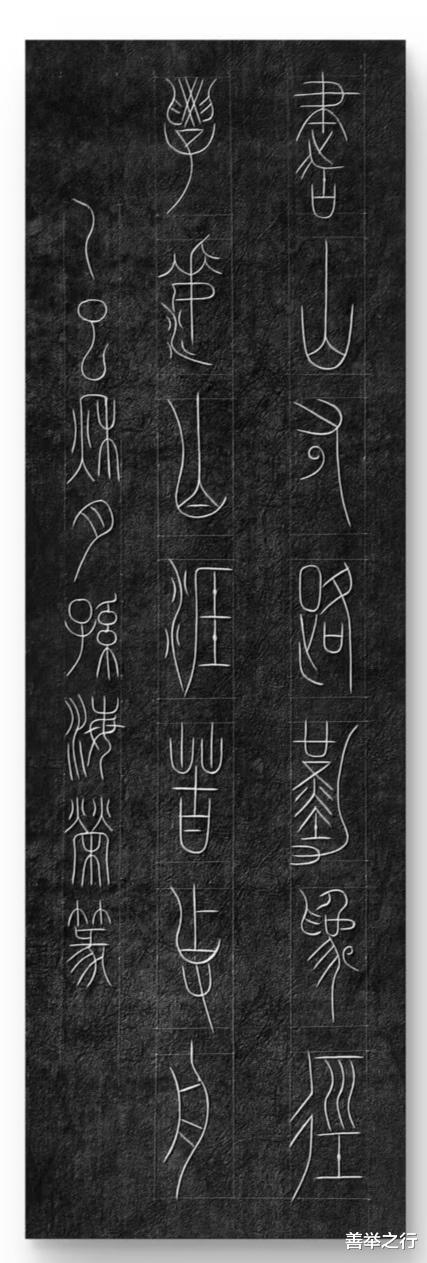 書山有路勤為徑
學海無涯苦作舟
乙巳秋月孫海榮篆
善举之行